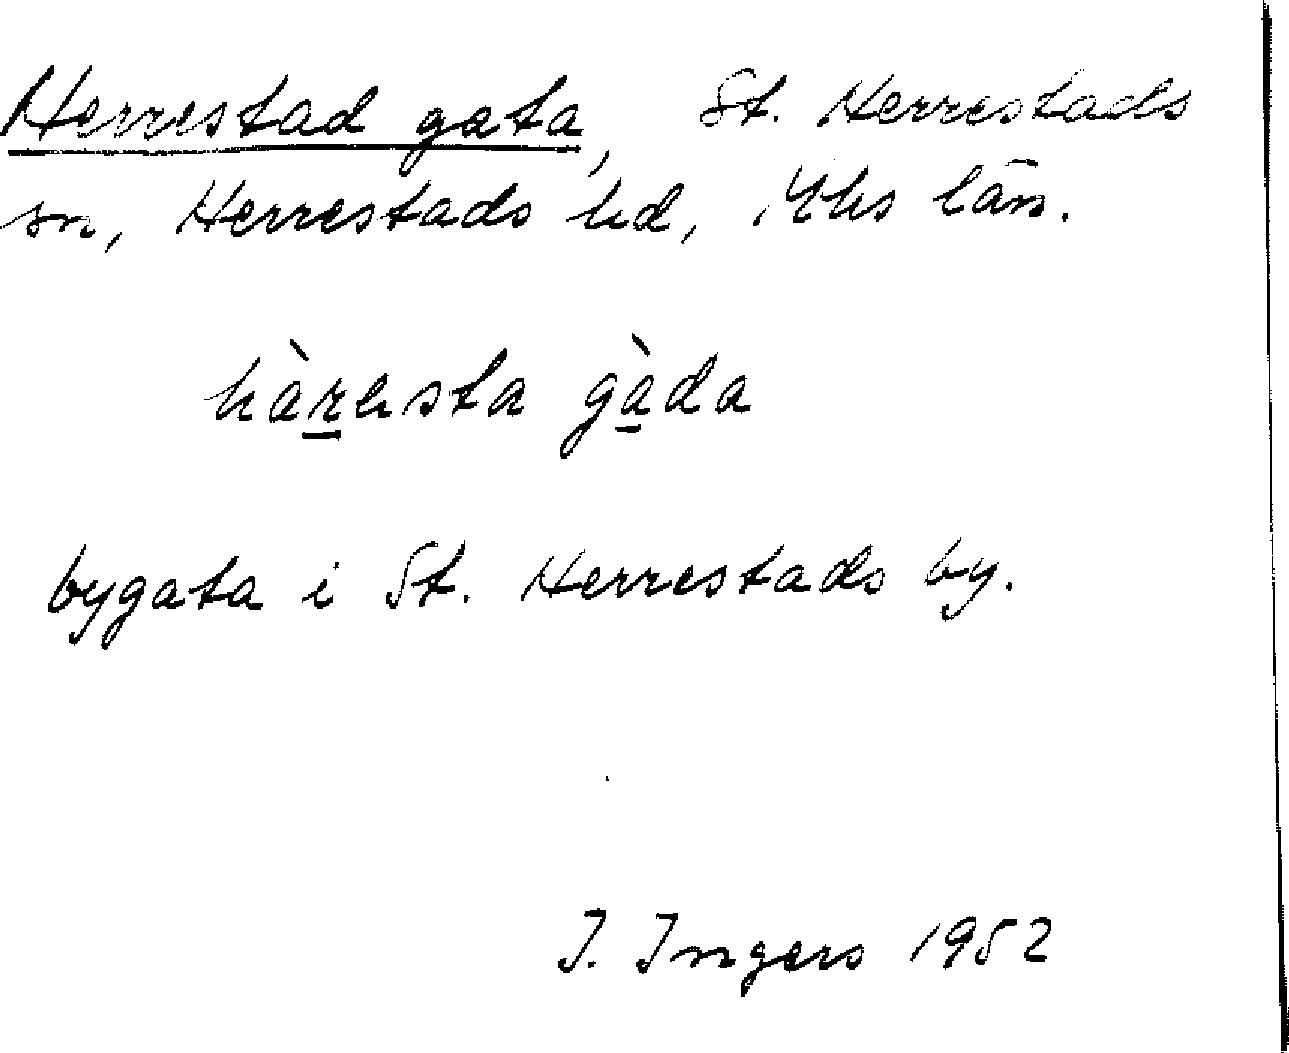 Herrestad gata, St. Herrestads
sn, Herrestads hd, Mhs län.
gàda
bygata i St. Herrestads by.
I. Ingers 1952